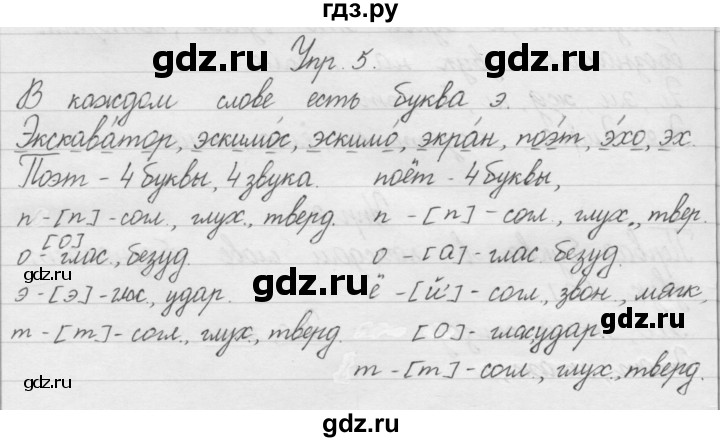 гдз.ру
gdz.ru Упр. 5. gdz.ru
В каждом слове есть буква э.
gdz.ru
Экскаватор, эскимос, эскимо, экран, поэт, эхо, эх.
Поэт - 4 буквы, 4 звука. поёт - 4 буквы,
п - [п] - согл., глух., тверд. п - [п] - согл., глух., твер.
о - [О] глас., безуд. о - [а] - глас. безуд.
gdz.ru gdz.ru
э - [э] - глас, удар. ё - [й'] - согл., звон., мягк,
т - [т] - согл., глух, тверд. [О] - гласударг.
gdz.ru gdz.ru
т - [т] - согл., глух., тверд.
gdz.ru